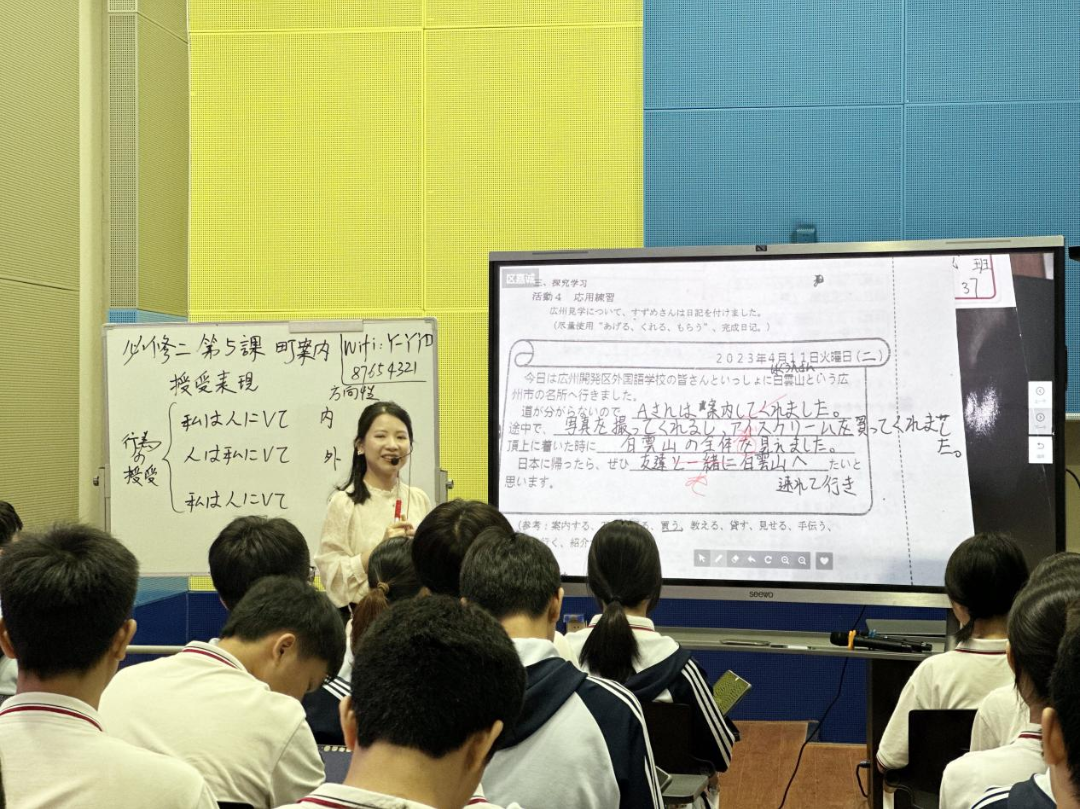 必修二 第5課 町案内
Wifi: Y-YYD
87654321
授受表現
方向性
行為の授受
私は人にVて 内
人は私にVて 外
私は人にVて
区嘉诚
班
37
三、探究学习
活動4 応用練習
広州見学について、すずめさんは日記を付けました。
(尽量使用“あげる、くれる、もらう”、完成日记。)
2023年4月11日火曜日(二)
はくうんさん
今日は広州開発区外国語学校の皆さんといっしょに白雲山という広
州市の名所へ行きました。
道が分からないので、Aさんは案内してくれました。
途中で、写真を撮ってくれるし、アイスクリームを買ってくれまして
た。
頂上に着いた時に 白雲山の全体を見えました。
日本に帰ったら、ぜひ 友達と一緒に白雲山へ たいと
思います。
連れて行き
(参考:案内する、
る、買う、教える、貸す、見せる、手伝う、
行く、紹介
seewo